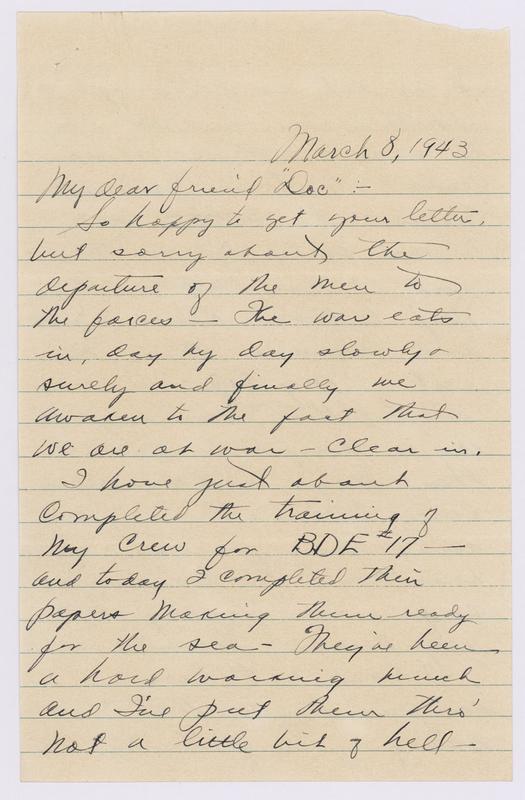 March 8, 1943
My dear friend "Doc" :-
So happy to get your letter,
but sorry about the
departure of the men to
the forces — The war eats
in, day by day slowly &
surely and finally we
awaken to the fact that
we are at war — clear in.
I have just about
completed the training of
my crew for BDE #17 —
and today I completed their
papers making them ready
for the sea — They've been
a hard working bunch
and I've put them thro'
not a little bit of hell —